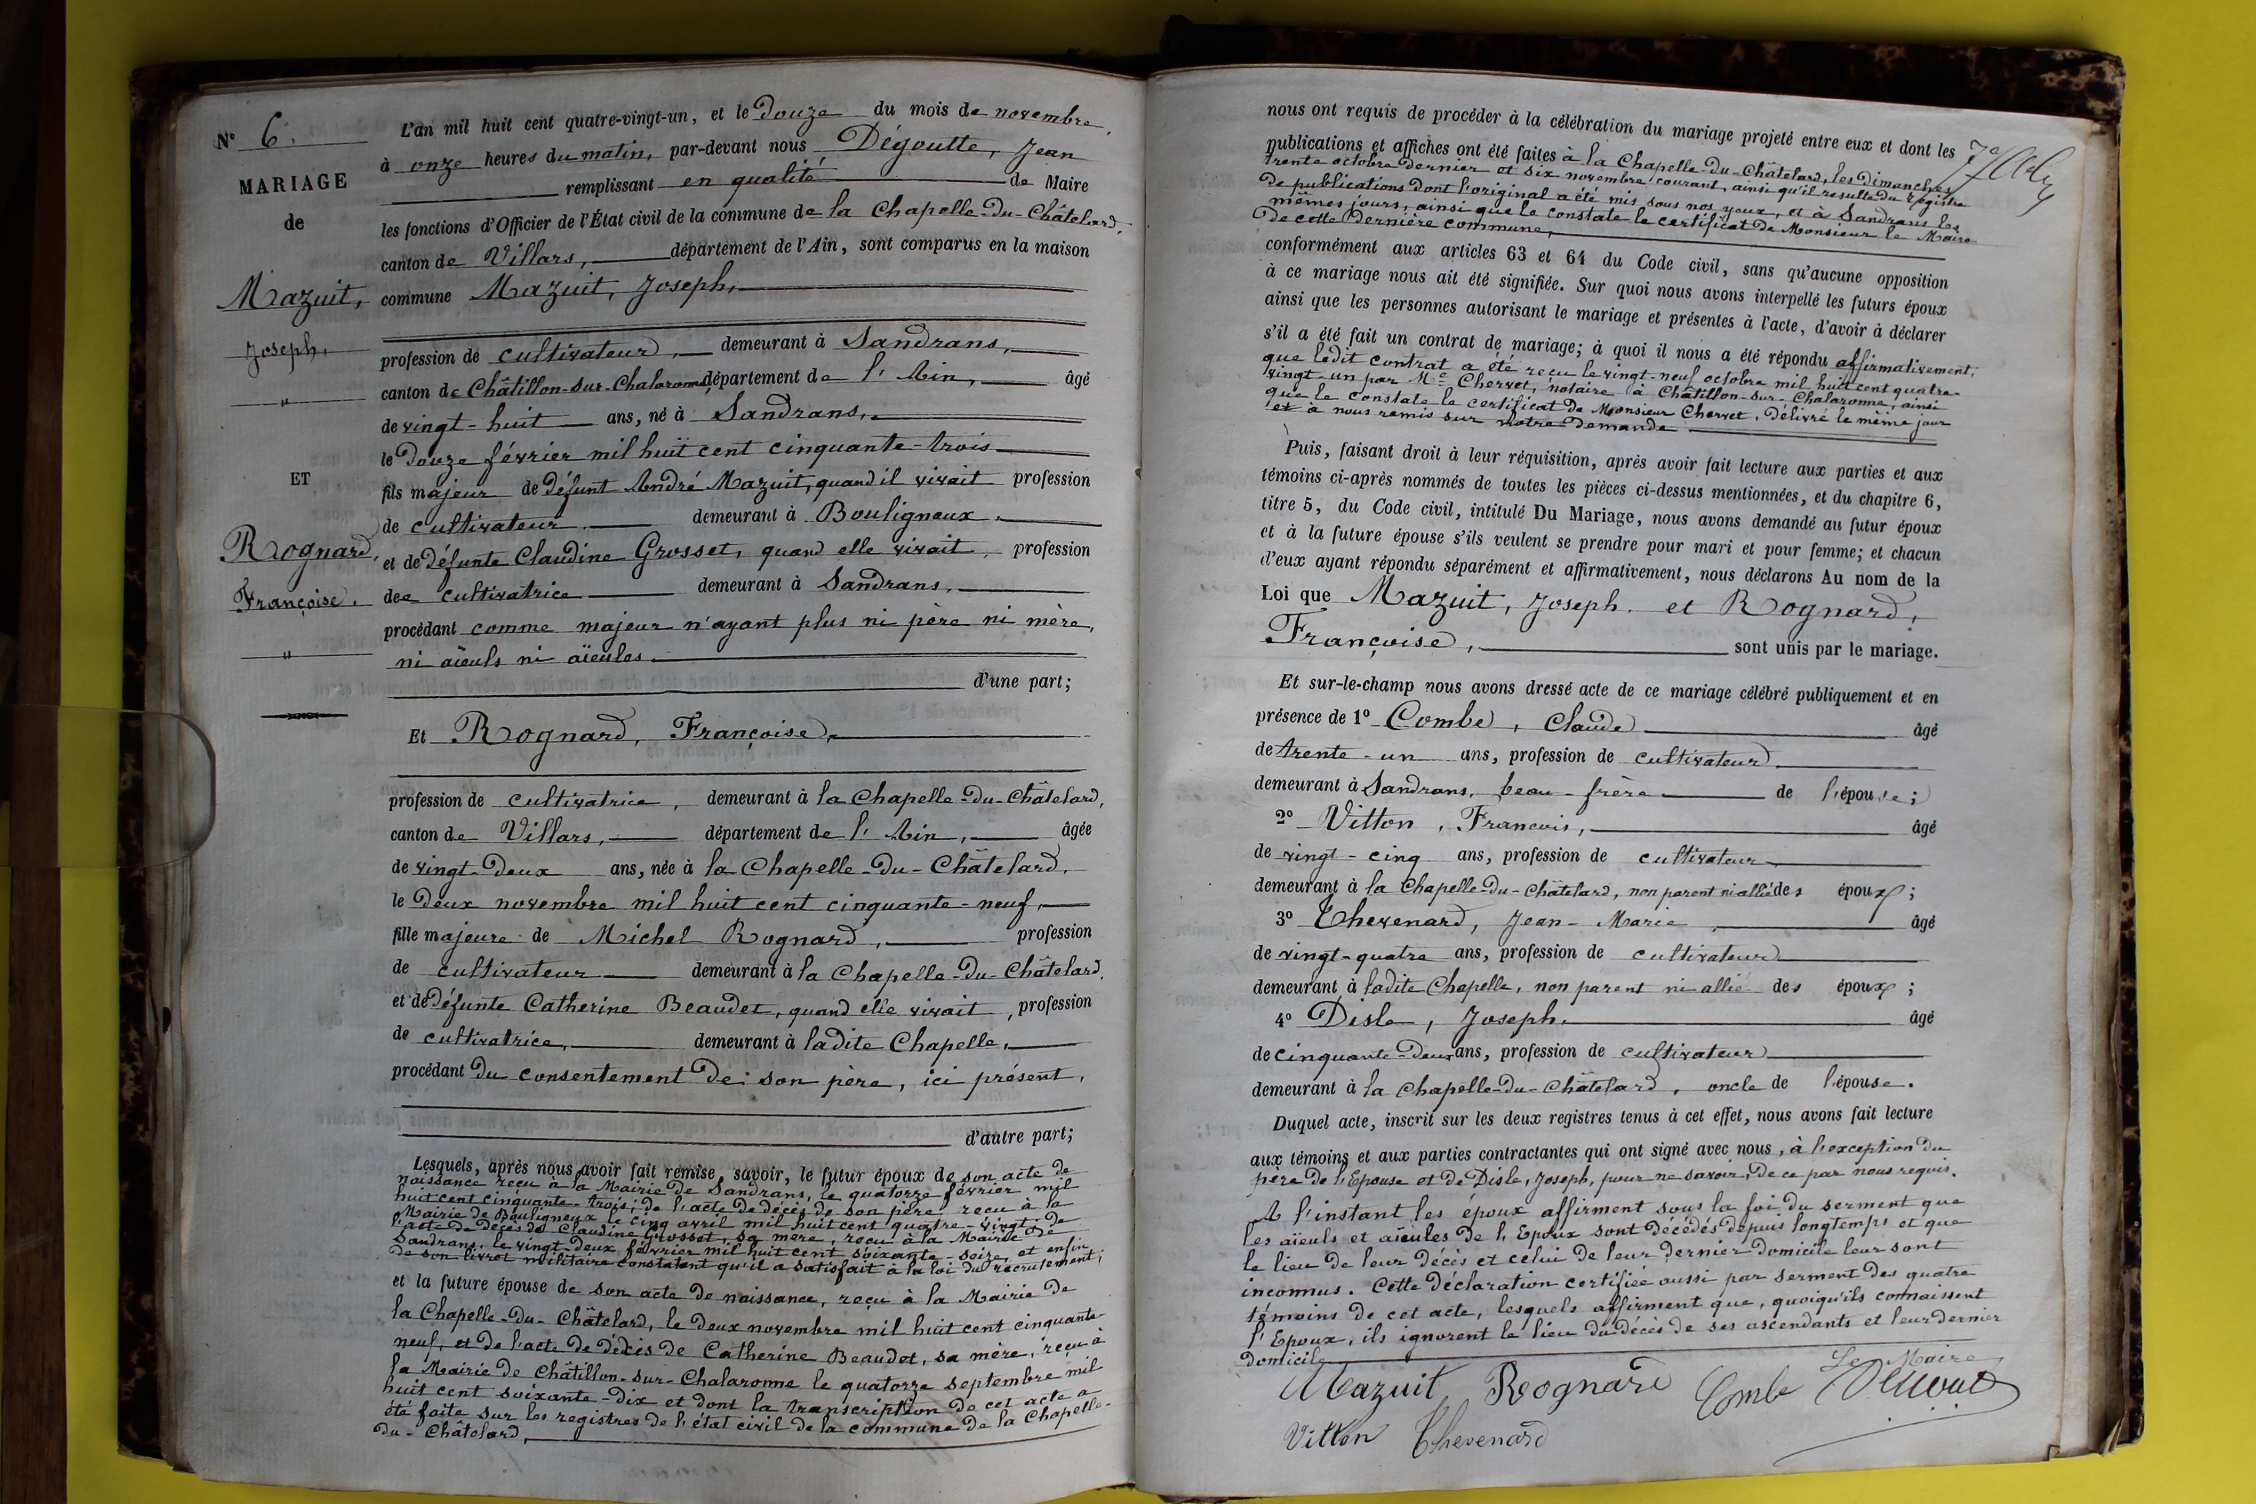 N° 6.
MARIAGE
de
Mazuit,
Joseph,
"
ET
Rognard,
Françoise.
"
L'an mil huit cent quatre-vingt-un, et le douze du mois de novembre,
à onze heures du matin, par-devant nous Dégoutte, Jean
remplissant en qualité de Maire
les fonctions d'Officier de l'État civil de la commune de la Chapelle-du-Châtelard,
canton de Villars, département de l'Ain, sont comparus en la maison
commune Mazuit, Joseph,
profession de cultivateur, demeurant à Sandrans,
canton de Châtillon-sur-Chalaronne, département de l'Ain, âgé
de vingt-huit ans, né à Sandrans,
le douze février mil huit cent cinquante-trois
fils majeur de défunt André Mazuit, quand il vivait profession
de cultivateur demeurant à Bouligneux,
et de défunte Claudine Grosset, quand elle vivait, profession
de cultivatrice demeurant à Sandrans,
procédant comme majeur n'ayant plus ni père ni mère,
ni aïeuls ni aïeules.
d'une part;
Et Rognard, Françoise,
profession de cultivatrice, demeurant à la Chapelle-du-Châtelard,
canton de Villars, département de l'Ain, âgée
de vingt-deux ans, née à la Chapelle-du-Châtelard,
le deux novembre mil huit cent cinquante-neuf,
fille majeure de Michel Rognard, profession
de cultivateur demeurant à la Chapelle-du-Châtelard,
et de défunte Catherine Beaudet, quand elle vivait, profession
de cultivatrice, demeurant à ladite Chapelle,
procédant du consentement de son père, ici présent,
d'autre part;
Lesquels, après nous avoir fait remise, savoir, le futur époux de son acte de
naissance reçu à la Mairie de Sandrans, le quatorze février mil
huit cent cinquante-trois; de l'acte de décès de son père reçu à la
Mairie de Bouligneux le cinq avril mil huit cent quatre-vingt; de
l'acte de décès de Claudine Grosset, sa mère, reçu à la Mairie de
Sandrans, le vingt-deux février mil huit cent soixante-seize, et enfin
de son livret militaire constatant qu'il a satisfait à la loi du recrutement;
et la future épouse de son acte de naissance, reçu à la Mairie de
la Chapelle-du-Châtelard, le deux novembre mil huit cent cinquante-
neuf, et de l'acte de décès de Catherine Beaudet, sa mère, reçu à
la Mairie de Châtillon-sur-Chalaronne le quatorze septembre mil
huit cent soixante-dix et dont la transcription de cet acte a
été faite sur les registres de l'état civil de la commune de la Chapelle-
du-Châtelard,
nous ont requis de procéder à la célébration du mariage projeté entre eux et dont les
publications et affiches ont été faites à la Chapelle-du-Châtelard, les dimanches
trente octobre dernier et six novembre courant, ainsi qu'il resulte du registre
de publications dont l'original a été mis sous nos yeux, et à Sandrans les
mêmes jours, ainsi que le constate le certificat de Monsieur le Maire
de cette dernière commune,
conformément aux articles 63 et 64 du Code civil, sans qu'aucune opposition
à ce mariage nous ait été signifiée. Sur quoi nous avons interpellé les futurs époux
ainsi que les personnes autorisant le mariage et présentes à l'acte, d'avoir à déclarer
s'il a été fait un contrat de mariage; à quoi il nous a été répondu affirmativement,
que ledit contrat a été reçu le vingt-neuf octobre mil huit cent quatre-
vingt-un par Me Chervet, notaire à Châtillon-sur-Chalaronne, ainsi
que le constate le certificat de Monsieur Chervet, délivré le même jour
et à nous remis sur notre demande
Puis, faisant droit à leur réquisition, après avoir fait lecture aux parties et aux
témoins ci-après nommés de toutes les pièces ci-dessus mentionnées, et du chapitre 6,
titre 5, du Code civil, intitulé Du Mariage, nous avons demandé au futur époux
et à la future épouse s'ils veulent se prendre pour mari et pour femme; et chacun
d'eux ayant répondu séparément et affirmativement, nous déclarons Au nom de la
Loi que Mazuit, Joseph. et Rognard,
Françoise, sont unis par le mariage.
Et sur-le-champ nous avons dressé acte de ce mariage célébré publiquement et en
présence de 1° Combe, Claude âgé
de trente-un ans, profession de cultivateur
demeurant à Sandrans, beau-frère de l'épouse;
2° Vitton, François, âgé
de vingt-cinq ans, profession de cultivateur
demeurant à la Chapelle-du-Châtelard, non parent ni allié des époux;
3° Thevenard, Jean-Marie, âgé
de vingt-quatre ans, profession de cultivateur
demeurant à ladite Chapelle, non parent ni allié des époux;
4° Disle, Joseph, âgé
de cinquante-deux ans, profession de cultivateur
demeurant à la Chapelle-du-Châtelard, oncle de l'épouse.
Duquel acte, inscrit sur les deux registres tenus à cet effet, nous avons fait lecture
aux témoins et aux parties contractantes qui ont signé avec nous, à l'exception du
père de l'Epouse et de Disle, Joseph, pour ne savoir, de ce par nous requis.
A l'instant les époux affirment sous la foi du serment que
les aïeuls et aïeules de l'Epoux sont décédés depuis longtemps et que
le lieu de leur décès et celui de leur dernier domicile leur sont
inconnus. Cette déclaration certifiée aussi par serment des quatre
témoins de cet acte, lesquels affirment que, quoiqu'ils connaissent
l'Epoux, ils ignorent le lieu du décès de ses ascendants et leur dernier
domicile
Le Maire
Mazuit Rognard Combe
Vitton Thevenard